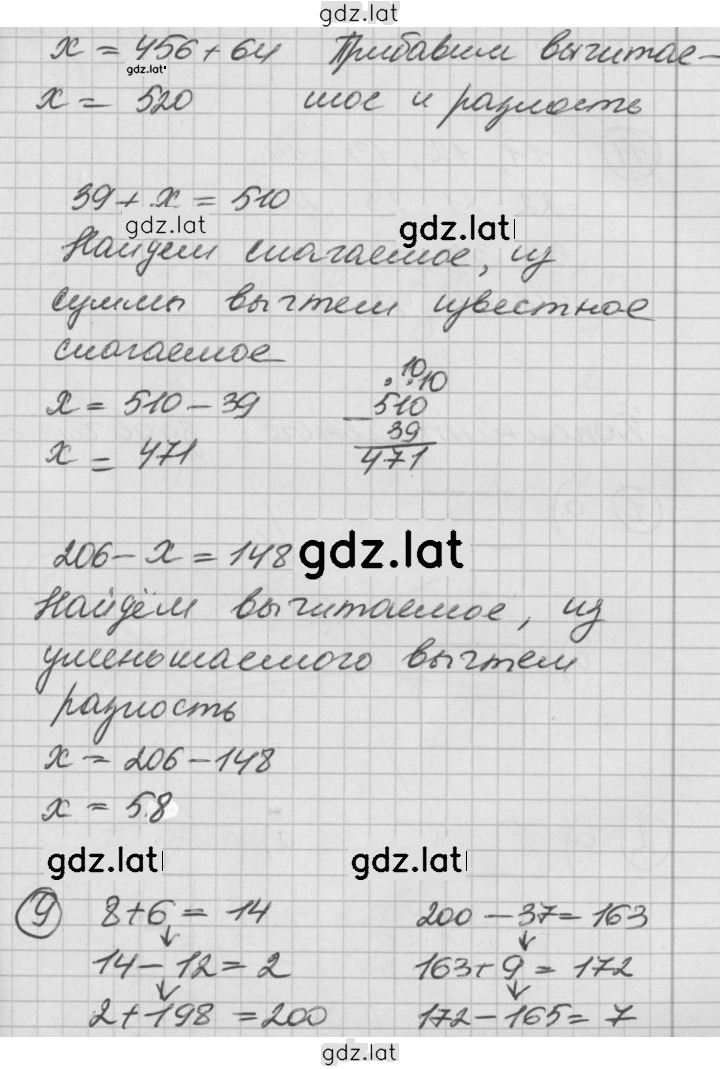 gdz.lat
x = 456 + 64 Прибавим вычитае-
gdz.lat
x = 520 мое и разность
39 + x = 510
gdz.lat
gdz.lat
Найдем слагаемое, из
суммы вычтем известное
слагаемое
10
. . 10
x = 510 - 39 510
- 39
x = 471 471
206 - x = 148 gdz.lat
Найдём вычитаемое, из
уменьшаемого вычтем
разность
x = 206 - 148
x = 58
gdz.lat gdz.lat
9 8 + 6 = 14 200 - 37 = 163
14 - 12 = 2 163 + 9 = 172
2 + 198 = 200 172 - 165 = 7
gdz.lat